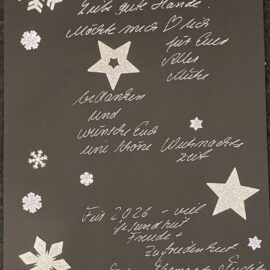 Liebe gute Hände!
Möchte mich ♡lich
für Eures
Alles
Mühe
bedanken
und
wünsche Euch
eine schöne Weihnachts
zeit
Für 2026 - viel
Gesundheit
Freude +
Zufriedenheit